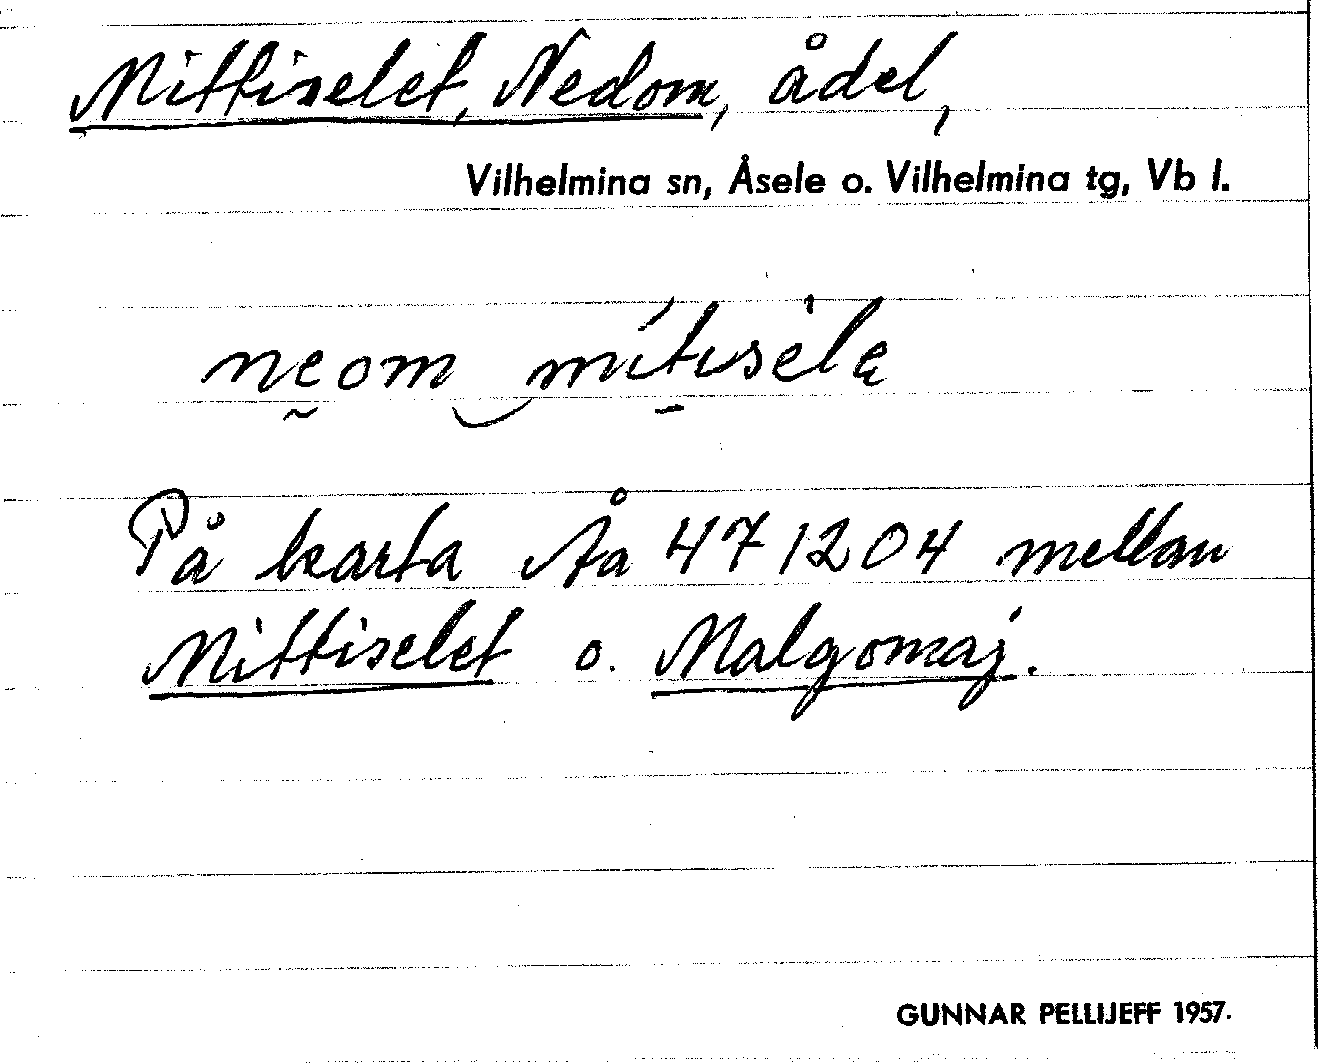 Mittiselet, Nedom, ådel,
Vilhelmina sn, Åsele o. Vilhelmina tg, Vb l.
neom
På karta Åa 471204 mellan
Mittiselet o. Malgomaj.
GUNNAR PELLIJEFF 1957.